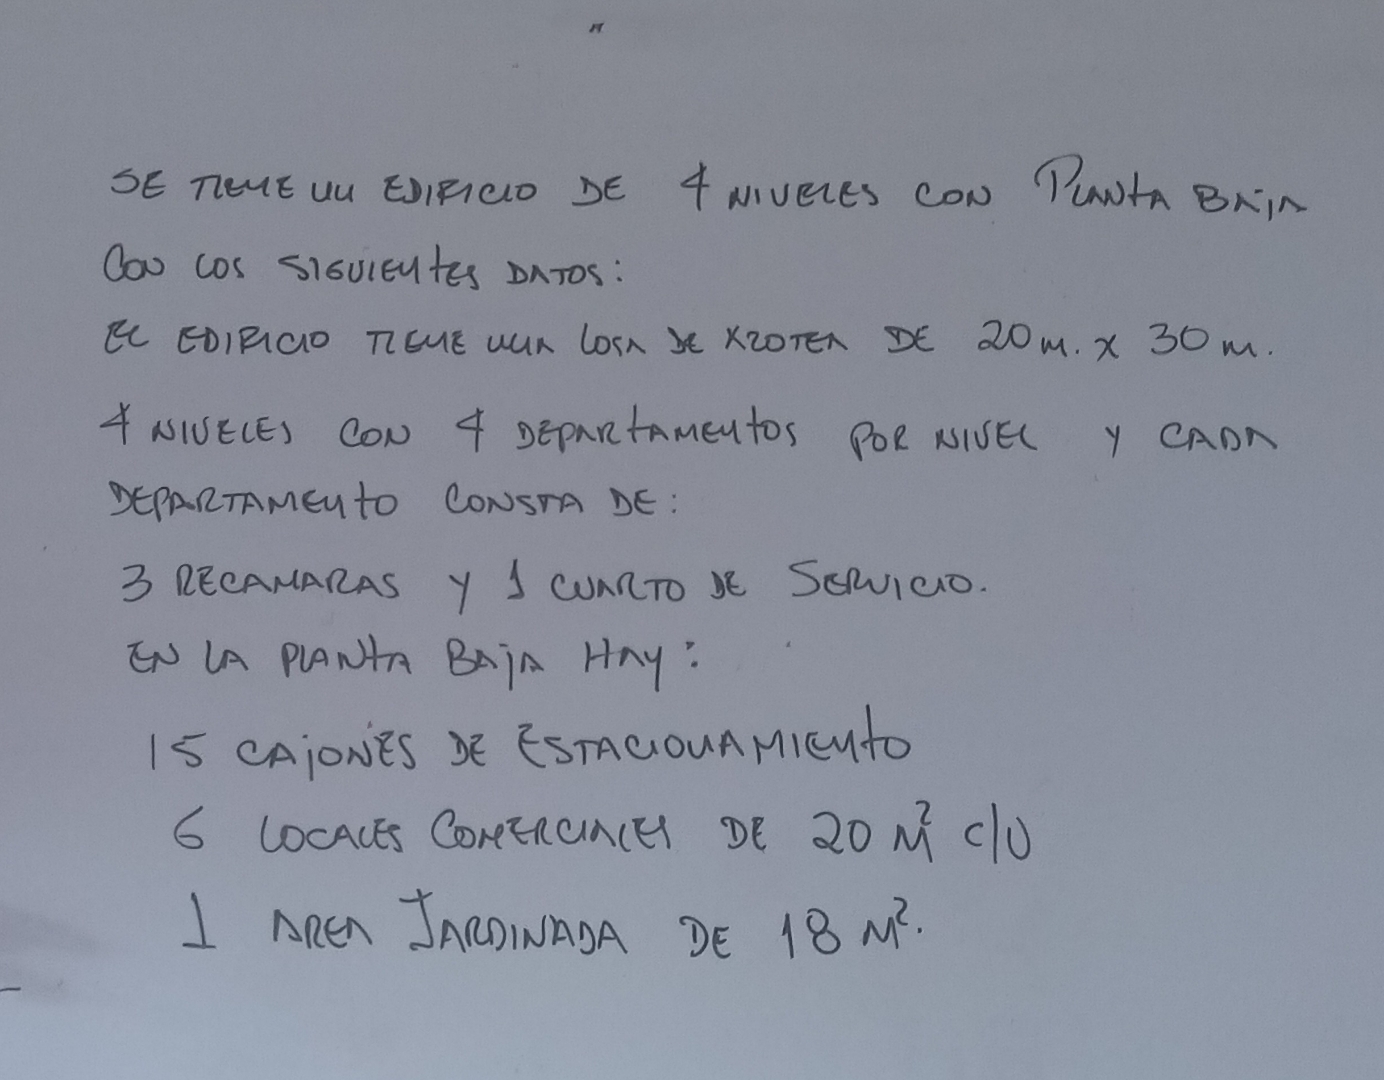 SE TIENE UN EDIFICIO DE 4 NIVELES CON PLANTA BAJA
CON LOS SIGUIENTES DATOS:
EL EDIFICIO TIENE UNA LOSA DE AZOTEA DE 20 m. x 30 m.
4 NIVELES CON 4 DEPARTAMENTOS POR NIVEL Y CADA
DEPARTAMENTO CONSTA DE:
3 RECAMARAS Y 1 CUARTO DE SERVICIO.
EN LA PLANTA BAJA HAY:
15 CAJONES DE ESTACIONAMIENTO
6 LOCALES COMERCIALES DE 20 M² C/U
1 AREA JARDINADA DE 18 M².